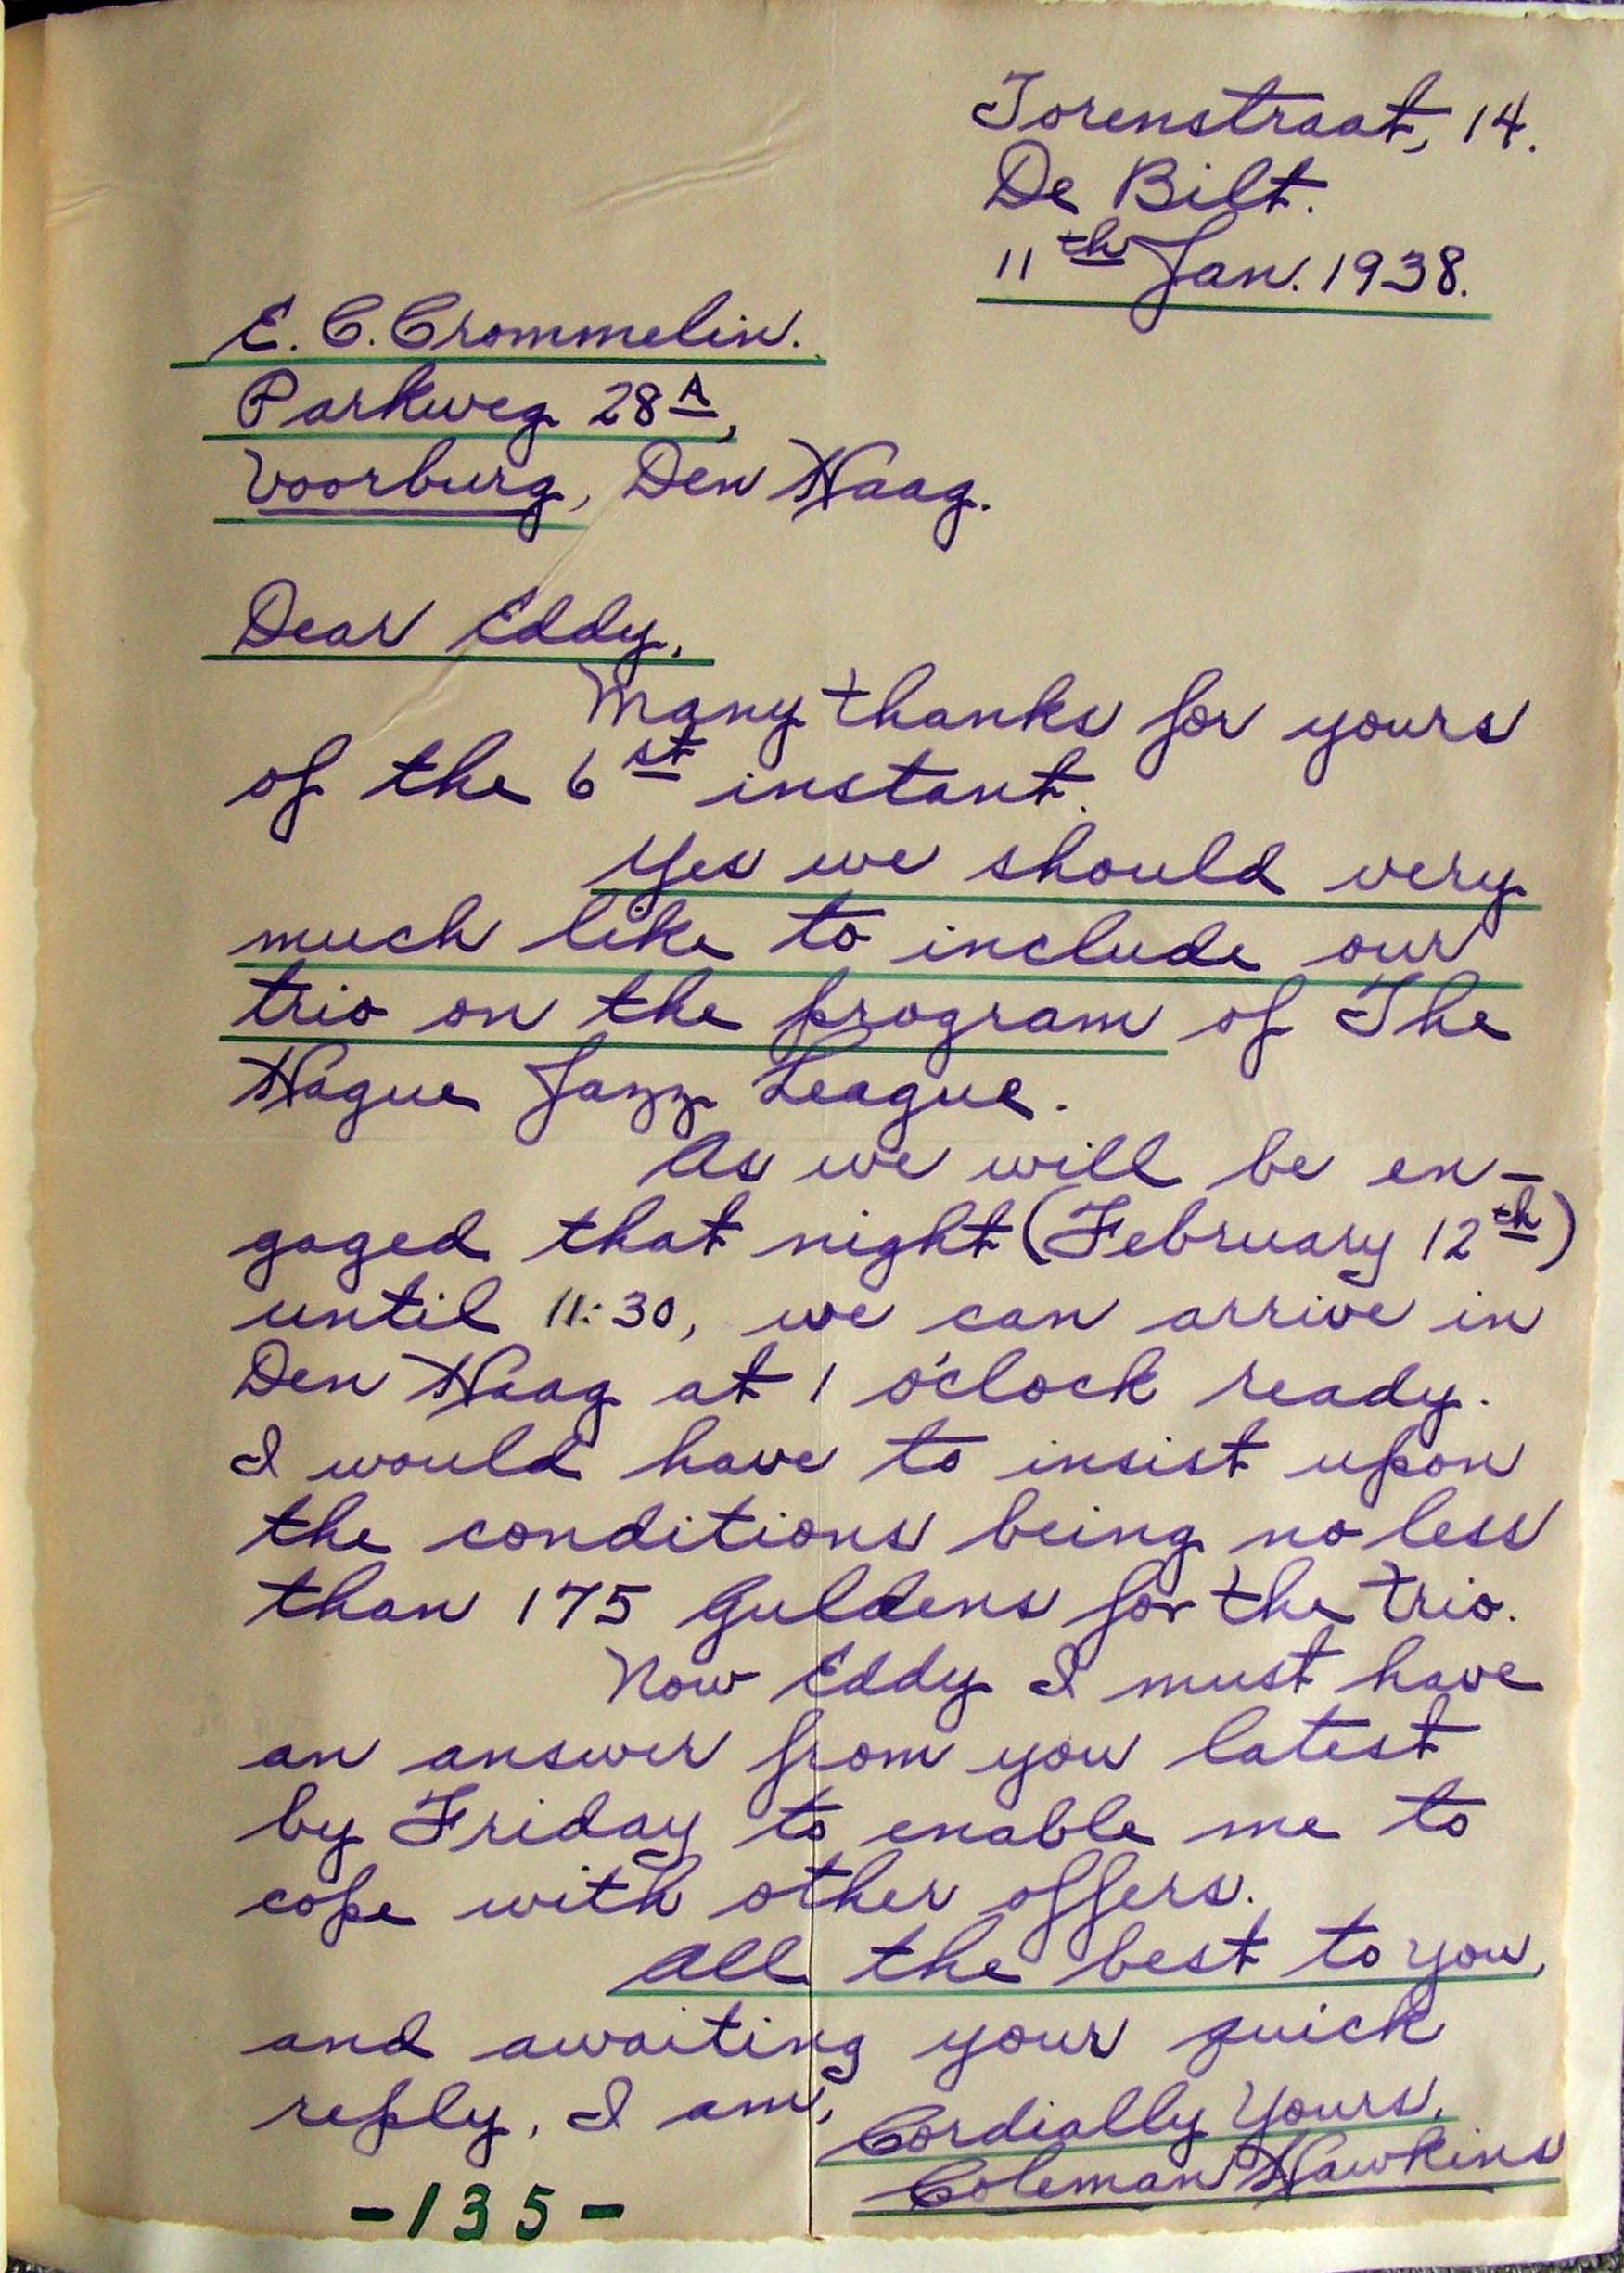 Torenstraat, 14.
De Bilt.
11th Jan. 1938.
E. C. Crommelin.
Parkweg 28A,
Voorburg, Den Haag.
Dear Eddy,
Many thanks for yours
of the 6st instant.
Yes we should very
much like to include our
trio on the program of The
Hague Jazz League.
As we will be en-
gaged that night (February 12th)
until 11:30, we can arrive in
Den Haag at 1 o'clock ready.
I would have to insist upon
the conditions being no less
than 175 Guldens for the trio.
Now Eddy I must have
an answer from you latest
by Friday to enable me to
cope with other offers.
All the best to you,
and awaiting your quick
reply, I am,
Cordially Yours,
Coleman Hawkins
-135-